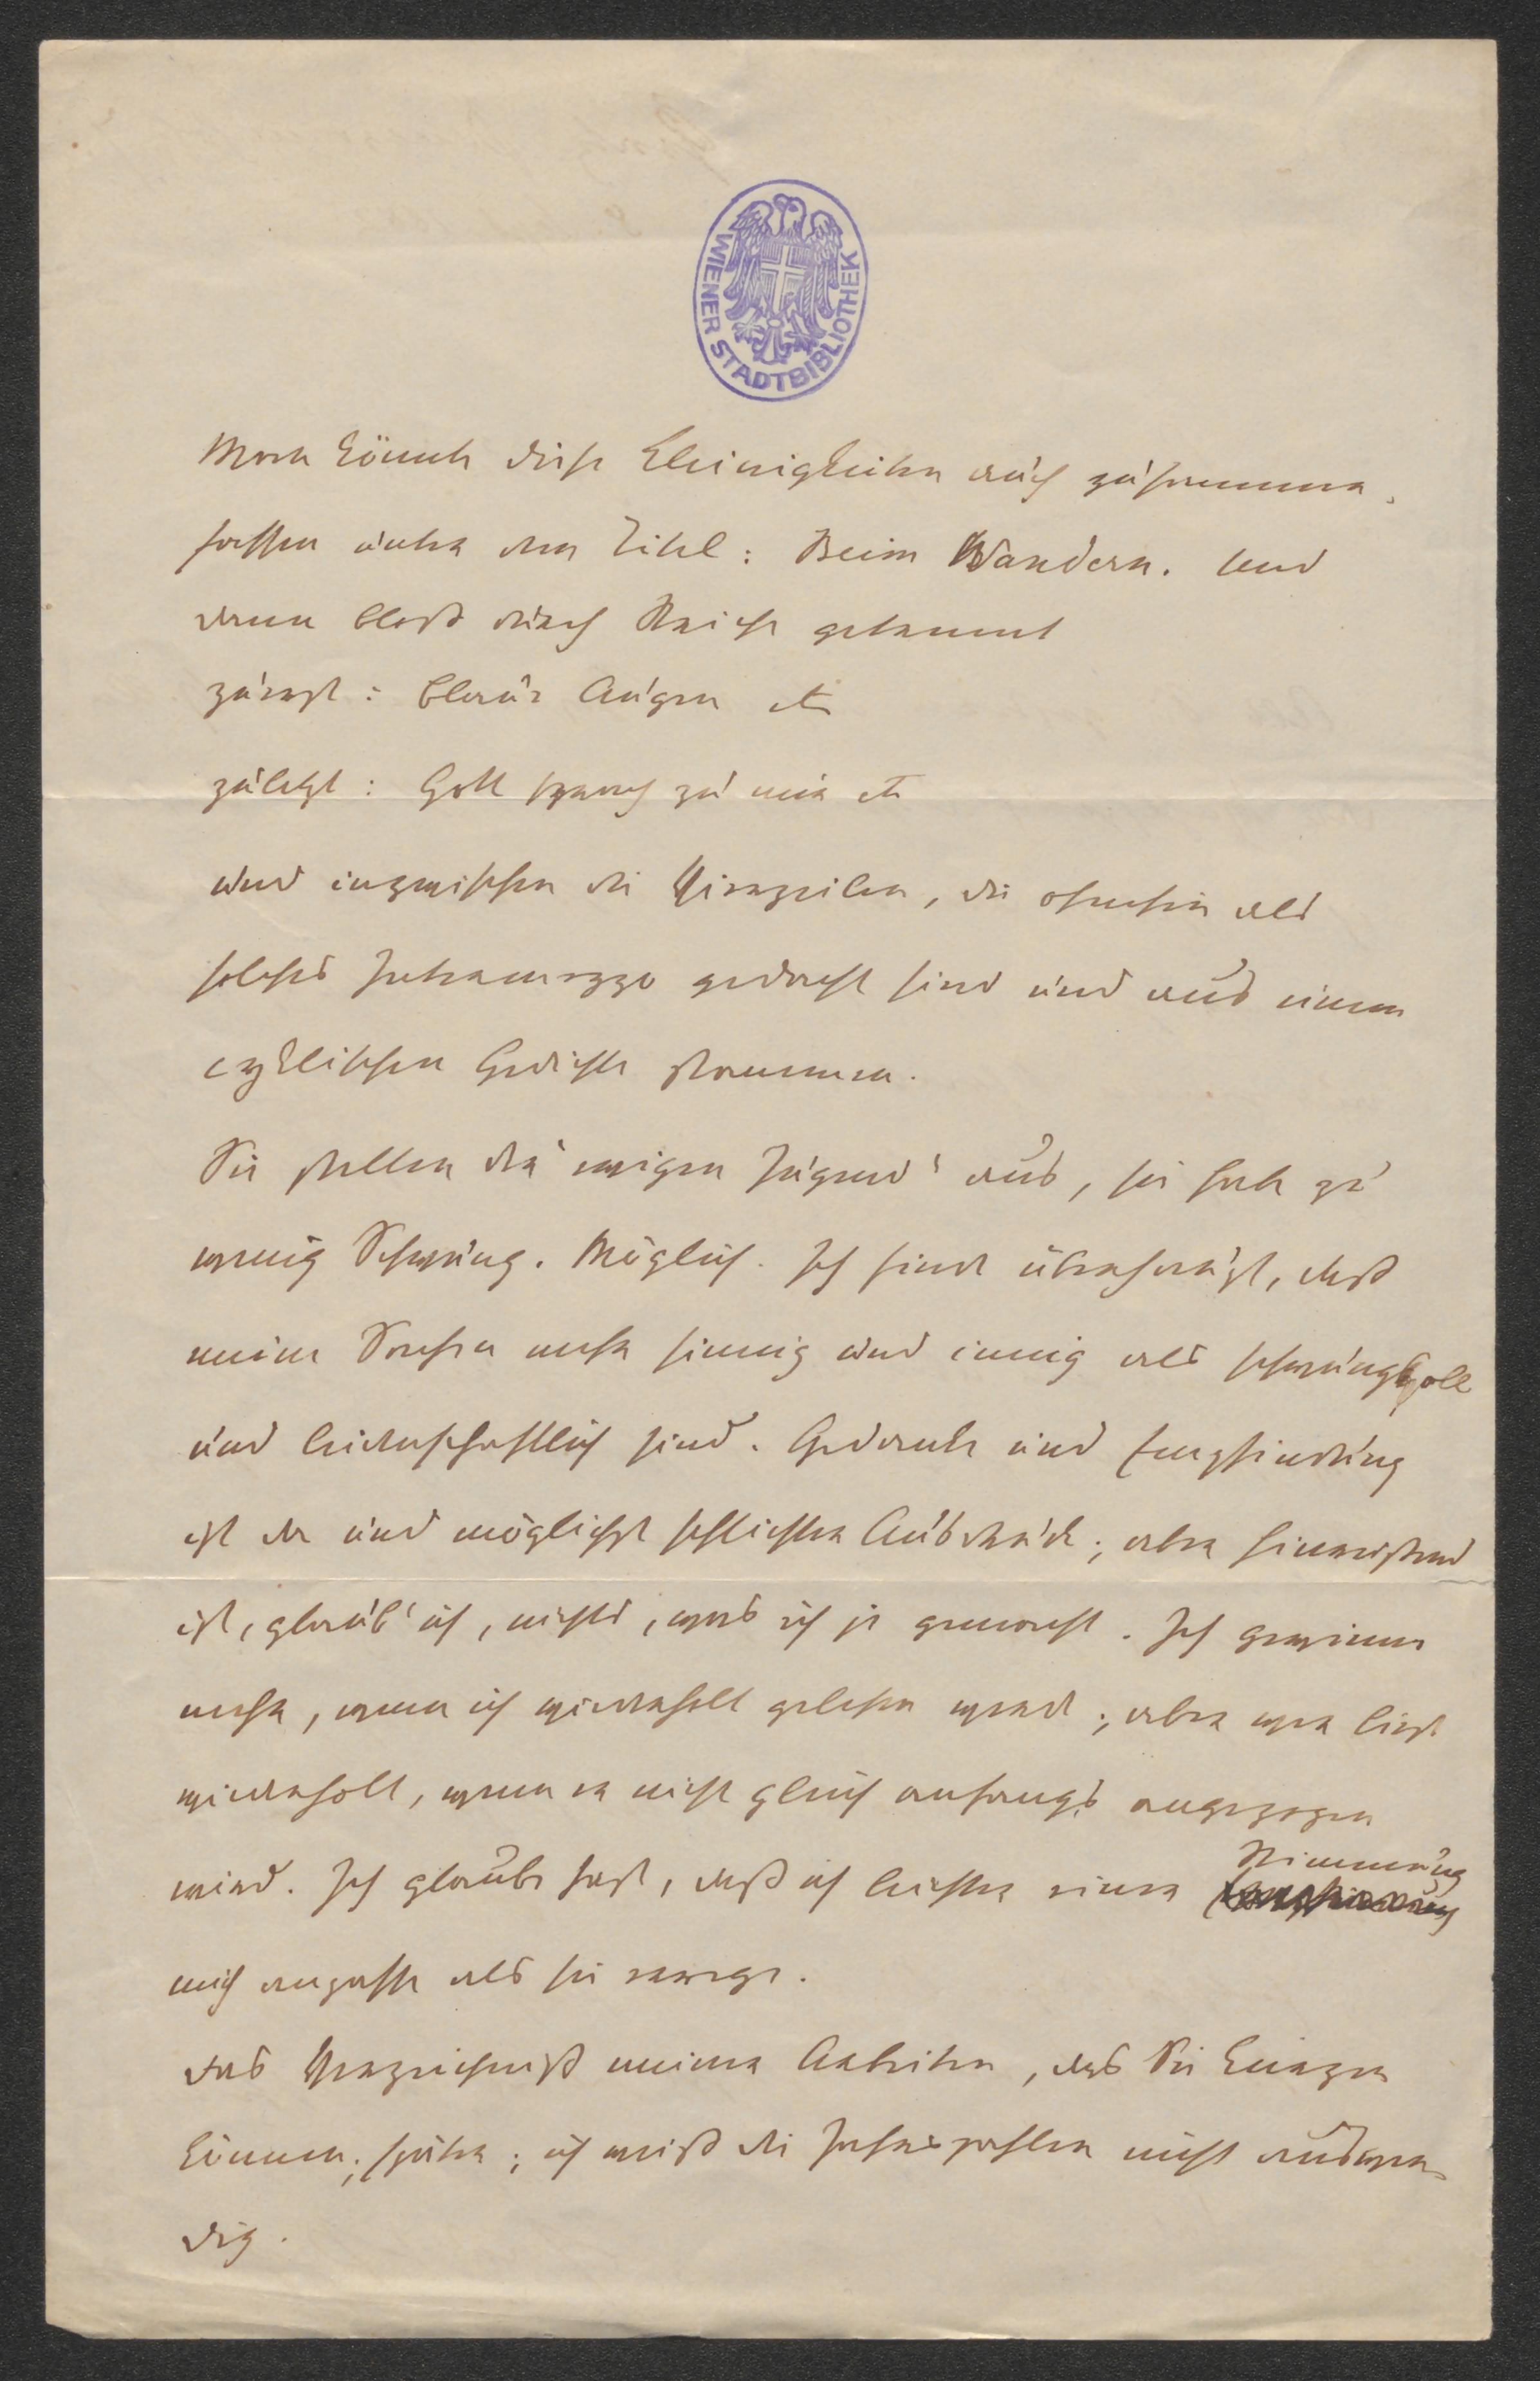 WIENER STADTBIBLIOTHEK
Man könnte diese Kleinigkeiten auch zusammen-
fassen unter dem Titel: Beim Wandern. Und
dann bloß durch Striche getrennt
zuerst: Blaue Augen etc
zuletzt: Gott sprach zu mir etc
und inzwischen die Vierzeilen, die ohnehin als
solches Intermezzo gedacht sind und aus einem
cyklischen Gedichte stammen.
Sie stellen der ewigen Jugend' aus, sie habe zu
wenig Schwung. Möglich. Ich finde überhaupt, daß
meine Sachen mehr sinnig und innig als schwungvoll
und leidenschaftlich sind. Gedanke und Empfindung
ist da und möglichst schlichter Ausdruck; aber hinreißend
ist, glaub' ich, nichts, was ich je gemacht. Ich gewinne
mehr, wenn ich wiederholt gelesen werde; aber wer liest
wiederholt, wenn er nicht gleich anfangs angezogen
wird. Ich glaube fast, daß ich leichter einer Stimmung
mich anpasse als sie errege.
Das Verzeichniß meiner Arbeiten, das Sie kürzen
können, später; ich weiß die Jahreszahlen nicht auswen-
dig.